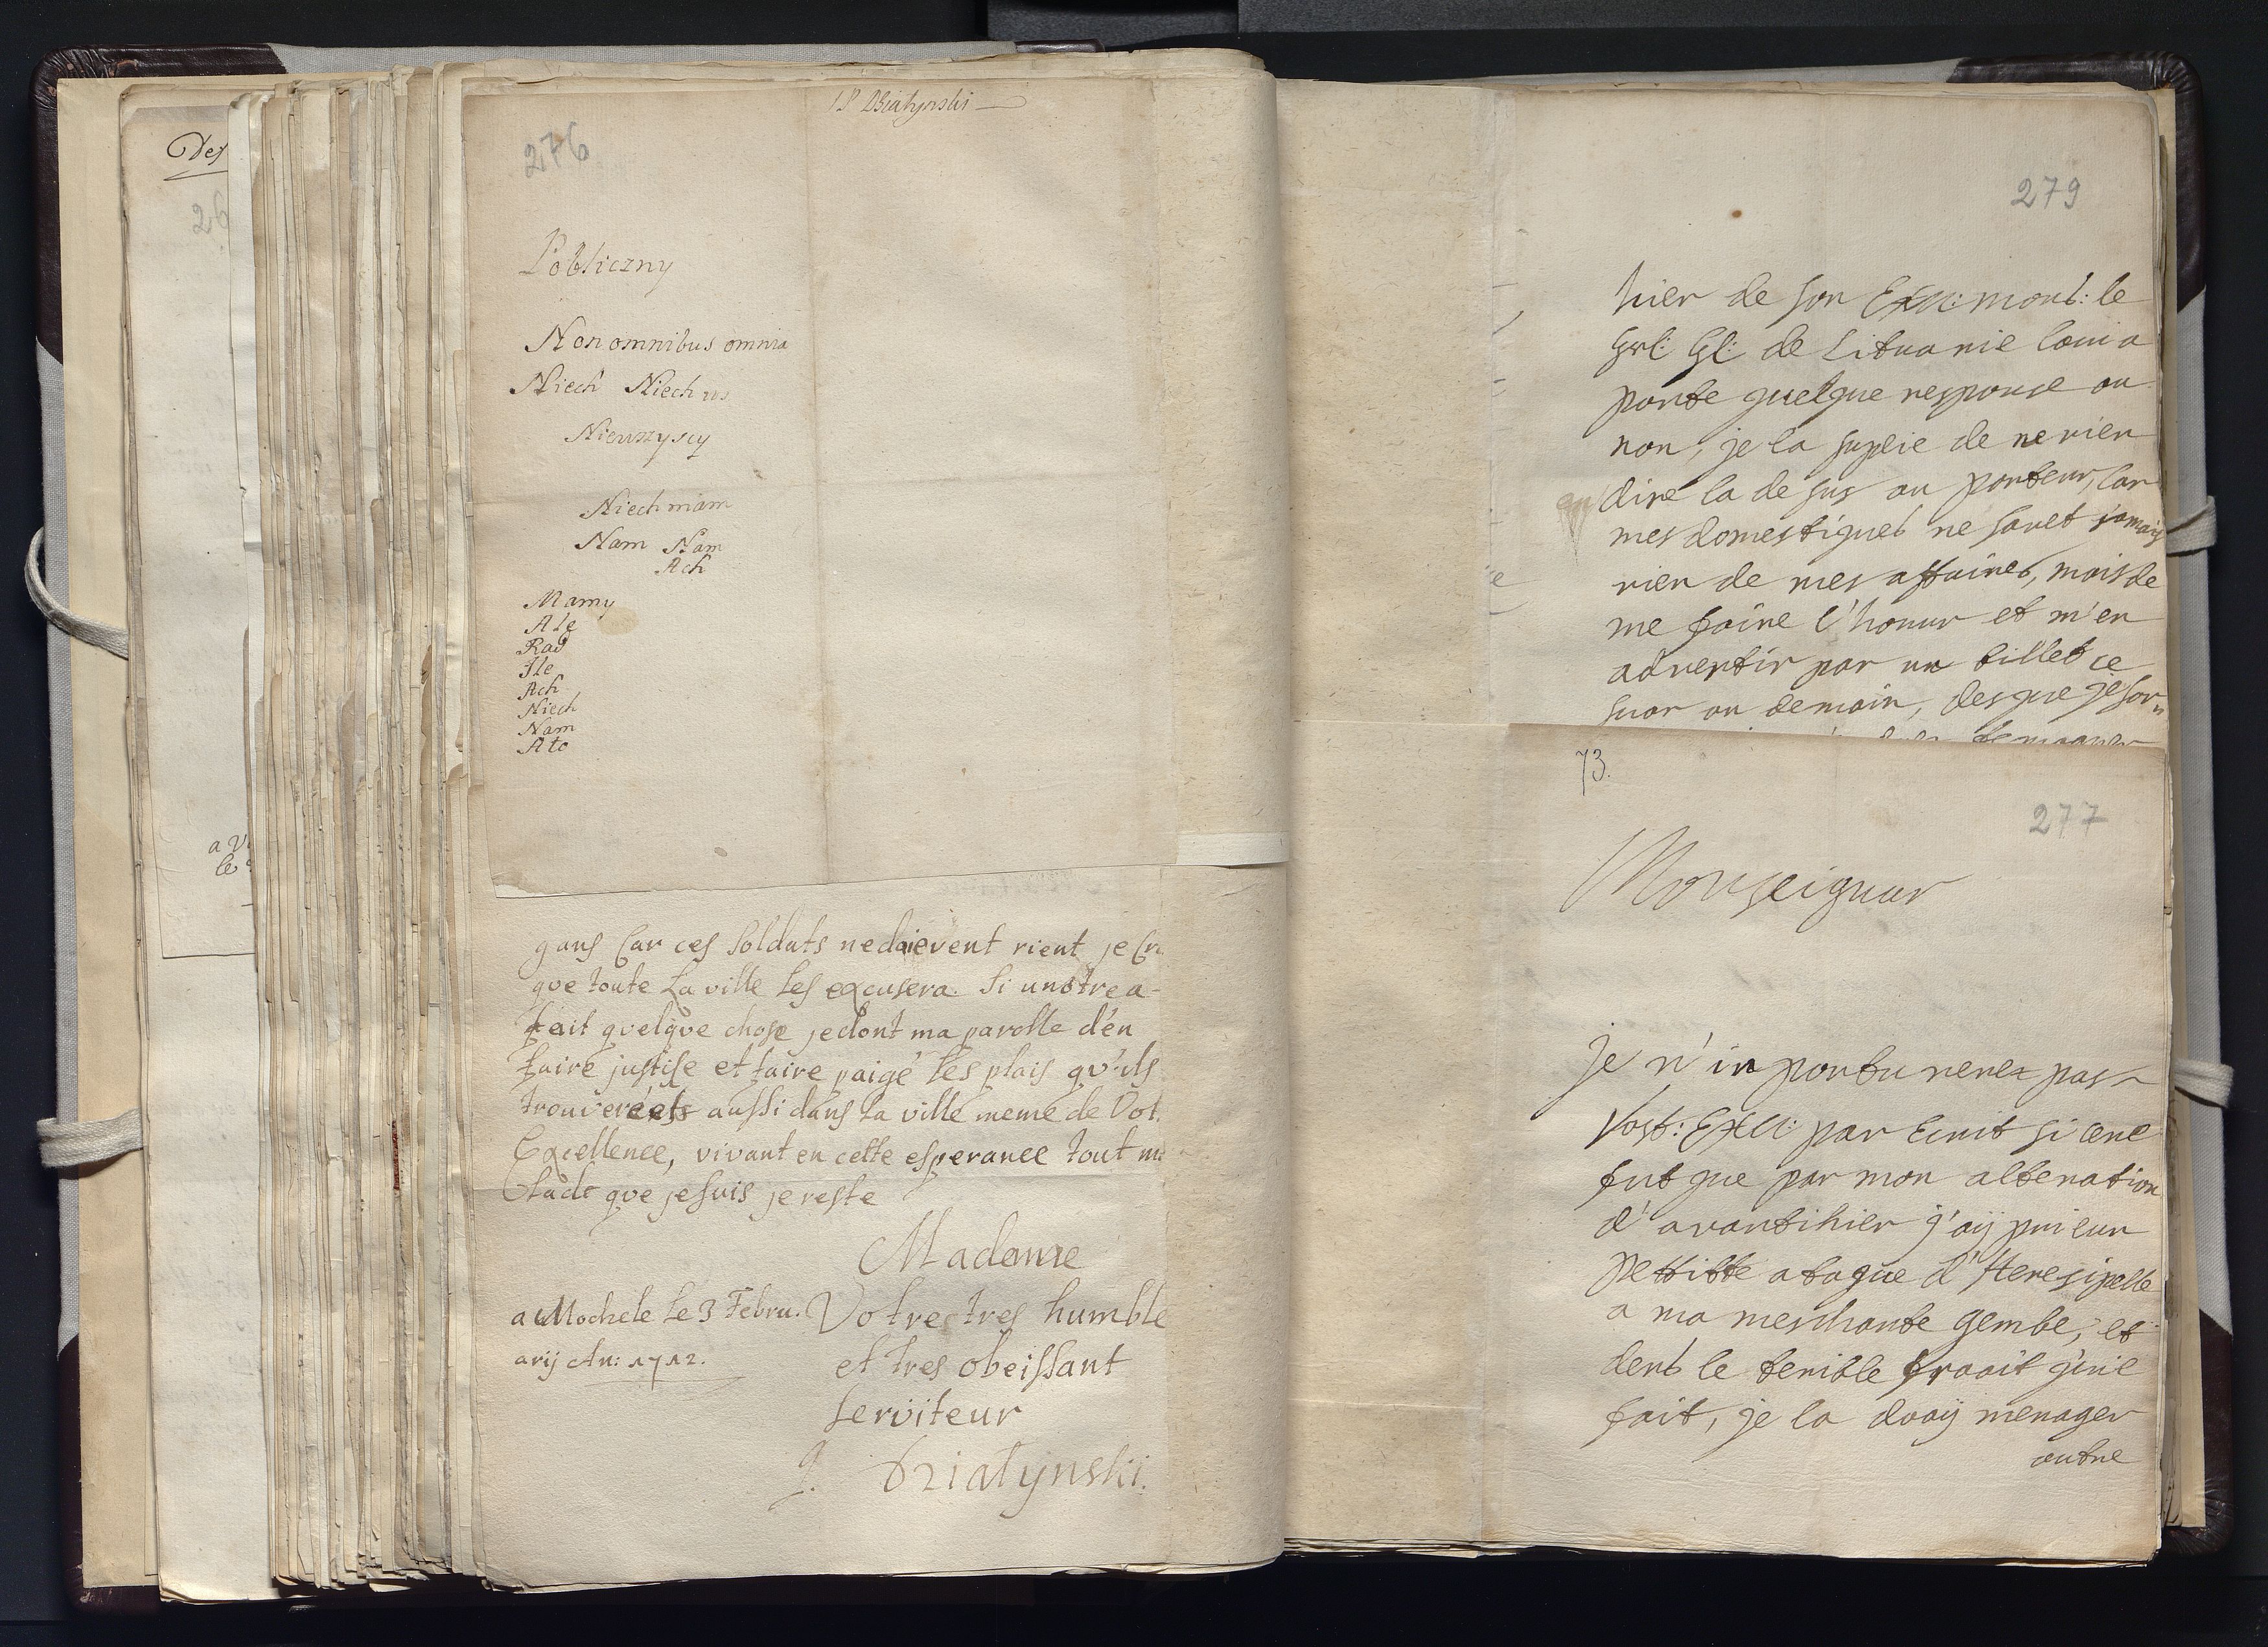 Des
26
a V
le
J.P. Dzialynski
276
Pobliczny
Non omnibus omnia
Niech Niech
Niewszyscy
Niech mam
Nam Nam
Ach
Mamy
Ale
Rad
Ile
Ach
Niech
Nam
Ato
gans Car ces soldats nedoievent rient je Cr
que toute La ville les excusera. Si un otre a
fait quelque chose je dont ma parolle d'en
faire justise et faire paigé les plais qu'ils
trouvereets aussi dans la ville meme de Vot.
Excellence, vivant en cette esperance tout m
lade que je suis je reste
Madame
a Mochele Le 3 Febru. Votre tres humble
arij An: 1712. et tres obeissant
serviteur
J. Dzialynski.
279
hier de son Exll: mons: le
Grl: Gl: de Lituanie lui a
porte quelque response ou
non, je la suplie de ne rien
dire la de sus au porteur, Car
mes domestiques ne savet jamais
rien de mes affaires, mais de
me faire l'honur et m'en
advertir par un billet ce
suar ou demain, des que je sor
temoaner
73.
277
Monseignur
Je n'in portunerez pas
Vost: Exll: par Ecrit si cene
fut que par mon altenation
d'avantihier j'aÿ pri eun
pettitte ataque d'Heresipelle
a ma meschante gembe, et
dens le terrible froait qu'ie
fait, je la doaÿ menager
outre